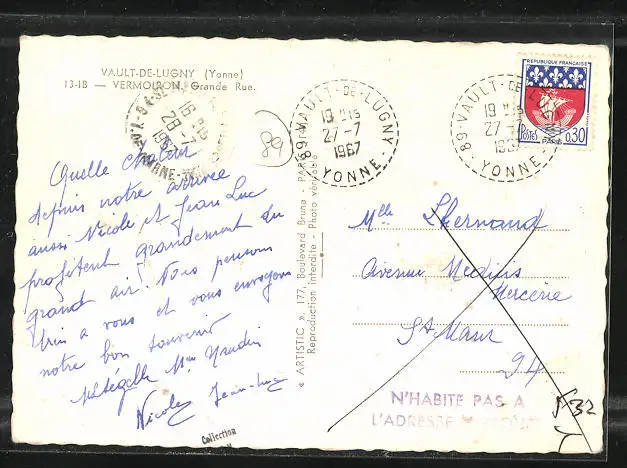 VAULT-DE-LUGNY (Yonne)
13-1B — VERMOIRON, Grande Rue.
16 H 15
28-7
1967
89
Quelle chaleur
depuis notre arrivée
aussi Nicole et Jean Luc
profitent grandement du
grand air. Nous pensons
bien a vous et vous envoyons
notre bon souvenir
Mme Naudin
Nicole Jean-Luc
« ARTISTIC », 177, Boulevard Brune - PARIS
Reproduction interdite - Photo véritable
89 VAULT-DE-LUGNY
19 H 15
27-7
1967
YONNE
89 VAULT-DE-LUGNY
19 H 15
27-7
1967
YONNE
REPUBLIQUE FRANÇAISE
POSTES 0,30
PARIS
Mlle Lhernand
Avenue
Mercerie
St Maur
94
N'HABITE PAS A
L'ADRESSE
Collection